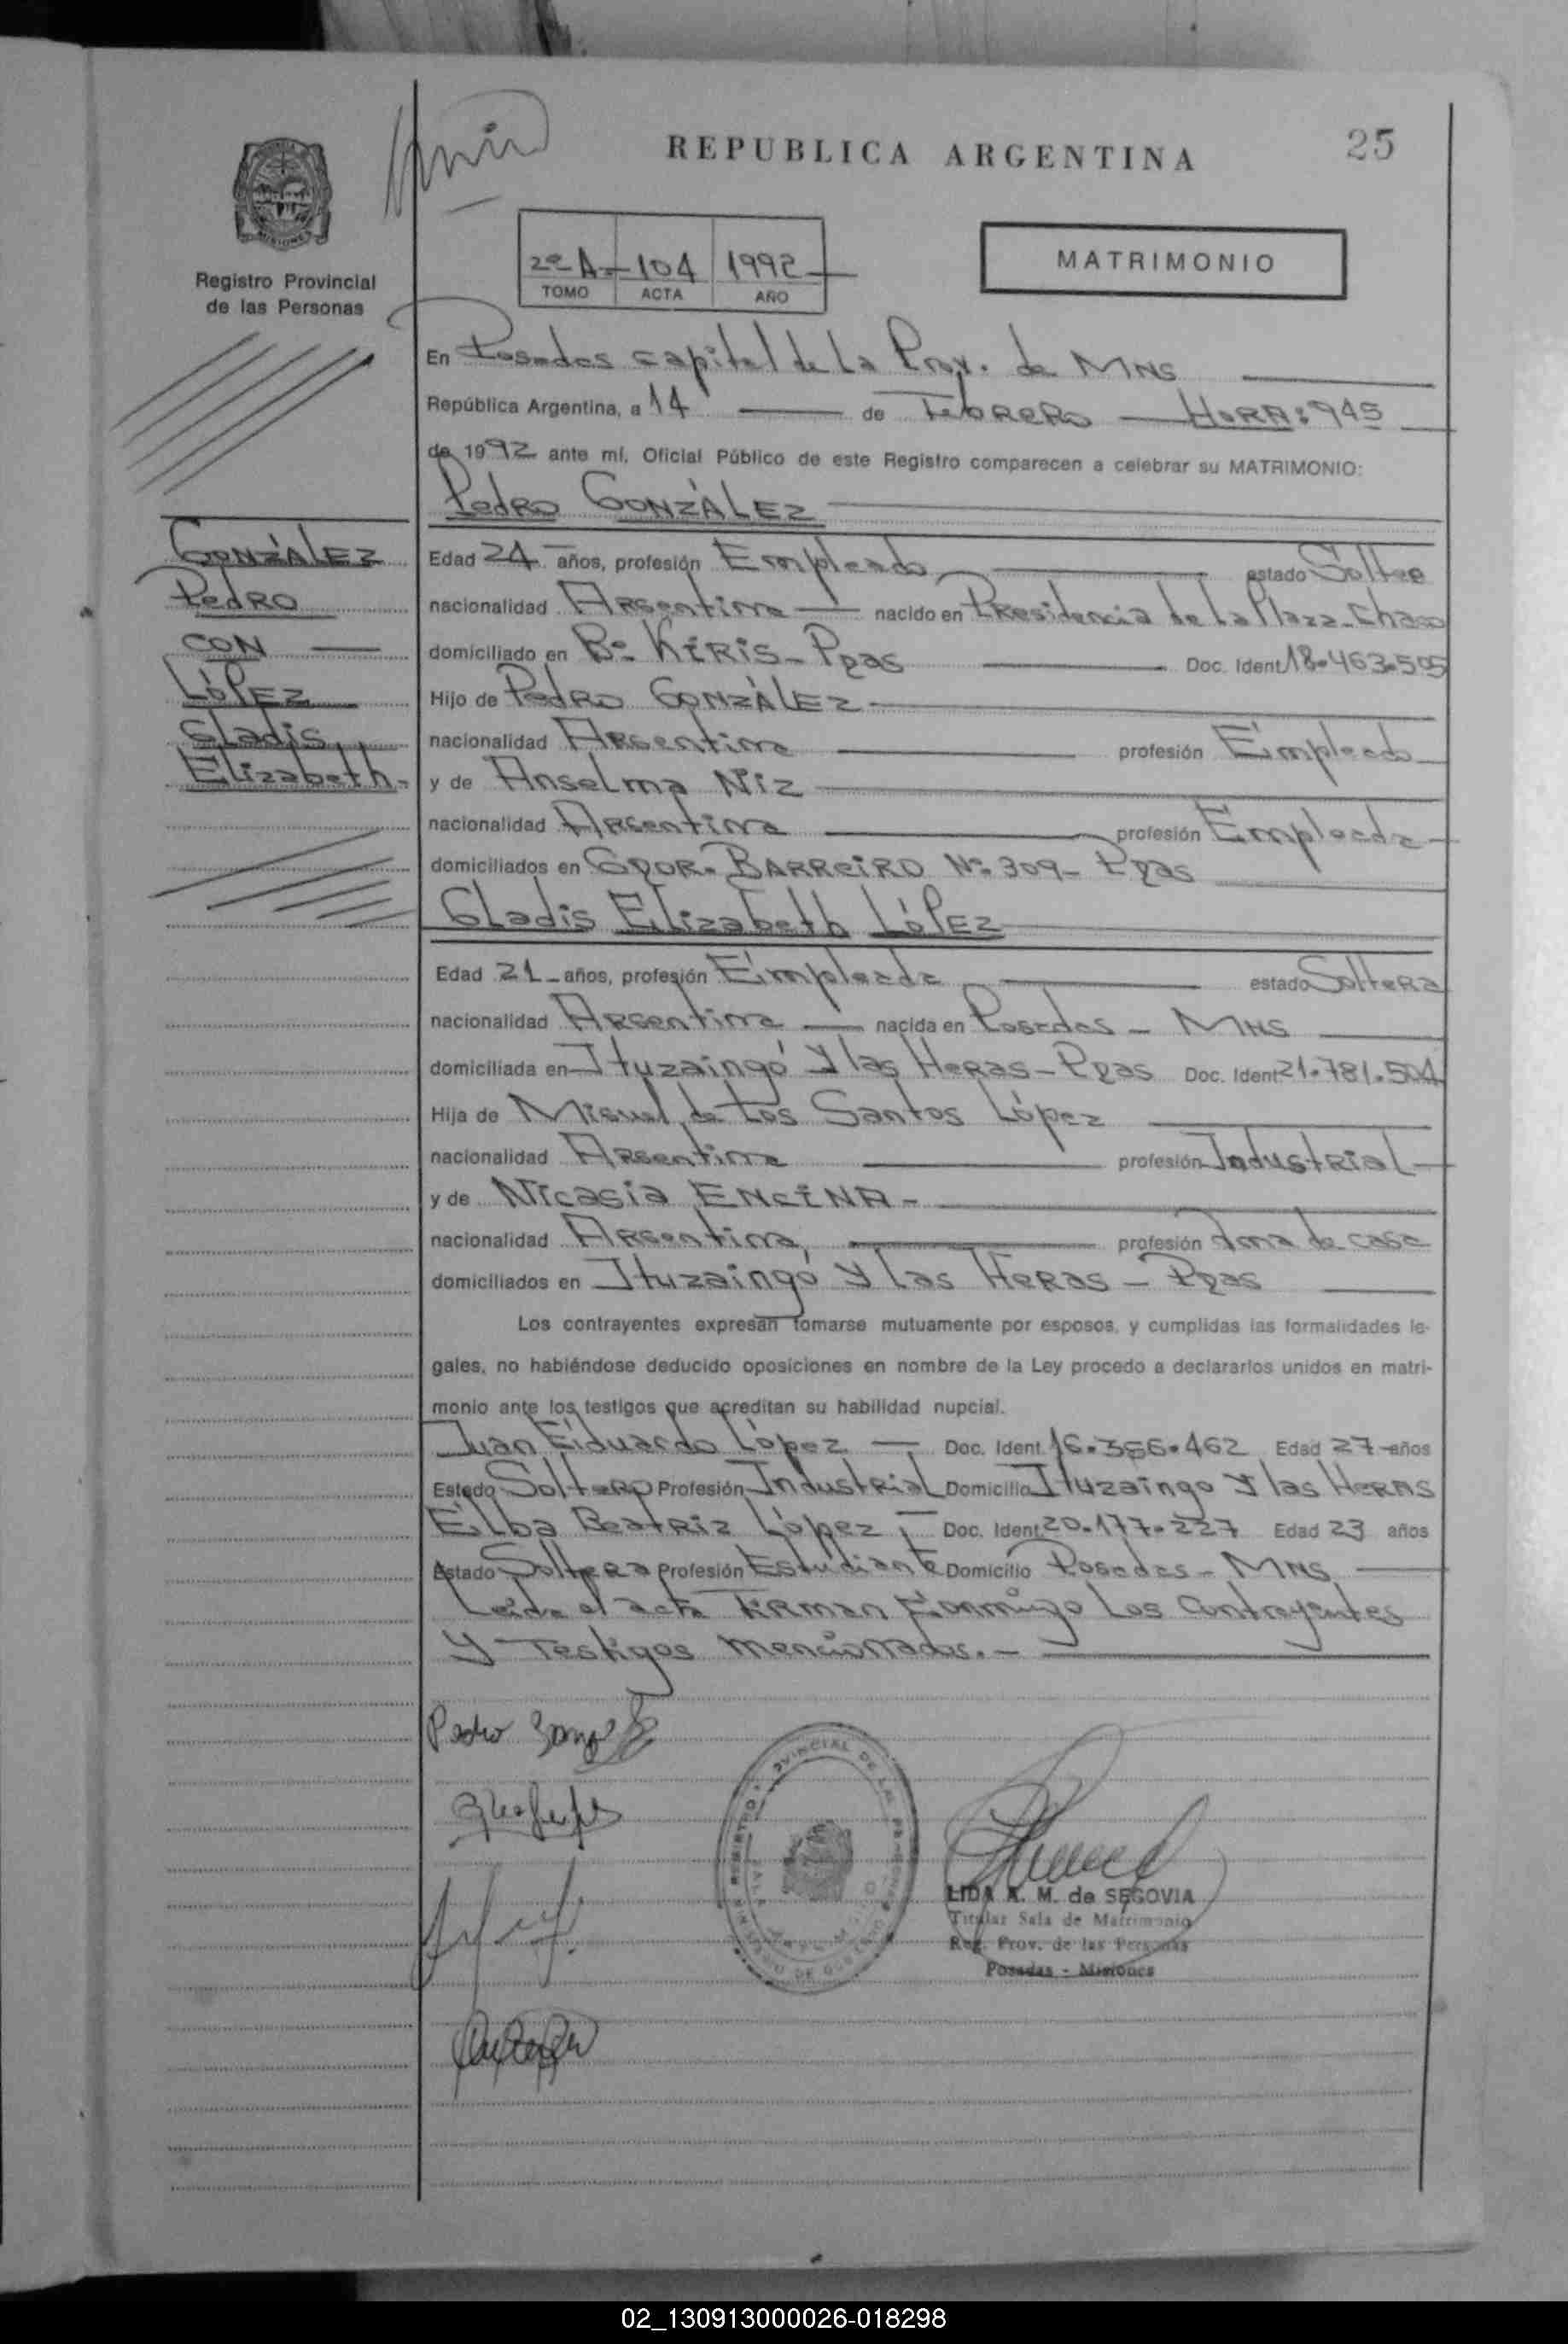 REPUBLICA ARGENTINA
25
Registro Provincial
de las Personas
2º A- 104 1992
TOMO ACTA AÑO
MATRIMONIO
En Posadas capital de la Prov. de MNS
República Argentina, a 14 de Febrero HORA: 945
de 1992 ante mí, Oficial Público de este Registro comparecen a celebrar su MATRIMONIO:
Pedro GONZÁLEZ
GONZÁLEZ
Pedro
CON
LÓPEZ
Gladis
Elizabeth.
Edad 24 años, profesión Empleado estado Soltero
nacionalidad Argentina nacido en Presidencia de la Plaza-Chaco
domiciliado en Bº KIRIS- Pdas Doc. Ident. 18.463.505
Hijo de Pedro GONZÁLEZ
nacionalidad Argentina profesión Empleado
y de Anselma Niz
nacionalidad Argentina profesión Empleada
domiciliados en GDOR. BARREIRO Nº 309- Pdas
Gladis Elizabeth LÓPEZ
Edad 21 años, profesión Empleada estado Soltera
nacionalidad Argentina nacida en Posadas - MNS
domiciliada en Ituzaingó y las Heras- Pdas Doc. Ident. 21.781.504
Hija de Miguel de Los Santos López
nacionalidad Argentina profesión Industrial
y de Nicasia ENCINA-
nacionalidad Argentina profesión Ama de casa
domiciliados en Ituzaingó y las Heras - Pdas
Los contrayentes expresan tomarse mutuamente por esposos, y cumplidas las formalidades le-
gales, no habiéndose deducido oposiciones en nombre de la Ley procedo a declararlos unidos en matri-
monio ante los testigos que acreditan su habilidad nupcial.
Juan Eduardo López Doc. Ident. 16.366.462 Edad 27 años
Estado Soltero Profesión Industrial Domicilio Ituzaingo y las Heras
Elba Beatriz López Doc. Ident. 20.177.227 Edad 23 años
Estado Soltera Profesión Estudiante Domicilio Posadas - MNS
Leída el acta Firman Conmigo Los Contrayentes
y Testigos mencionados.-
Pedro
LIDA A. M. de SEGOVIA
Titular Sala de Matrimonio
Reg. Prov. de las Personas
Posadas - Misiones
02_130913000026-018298